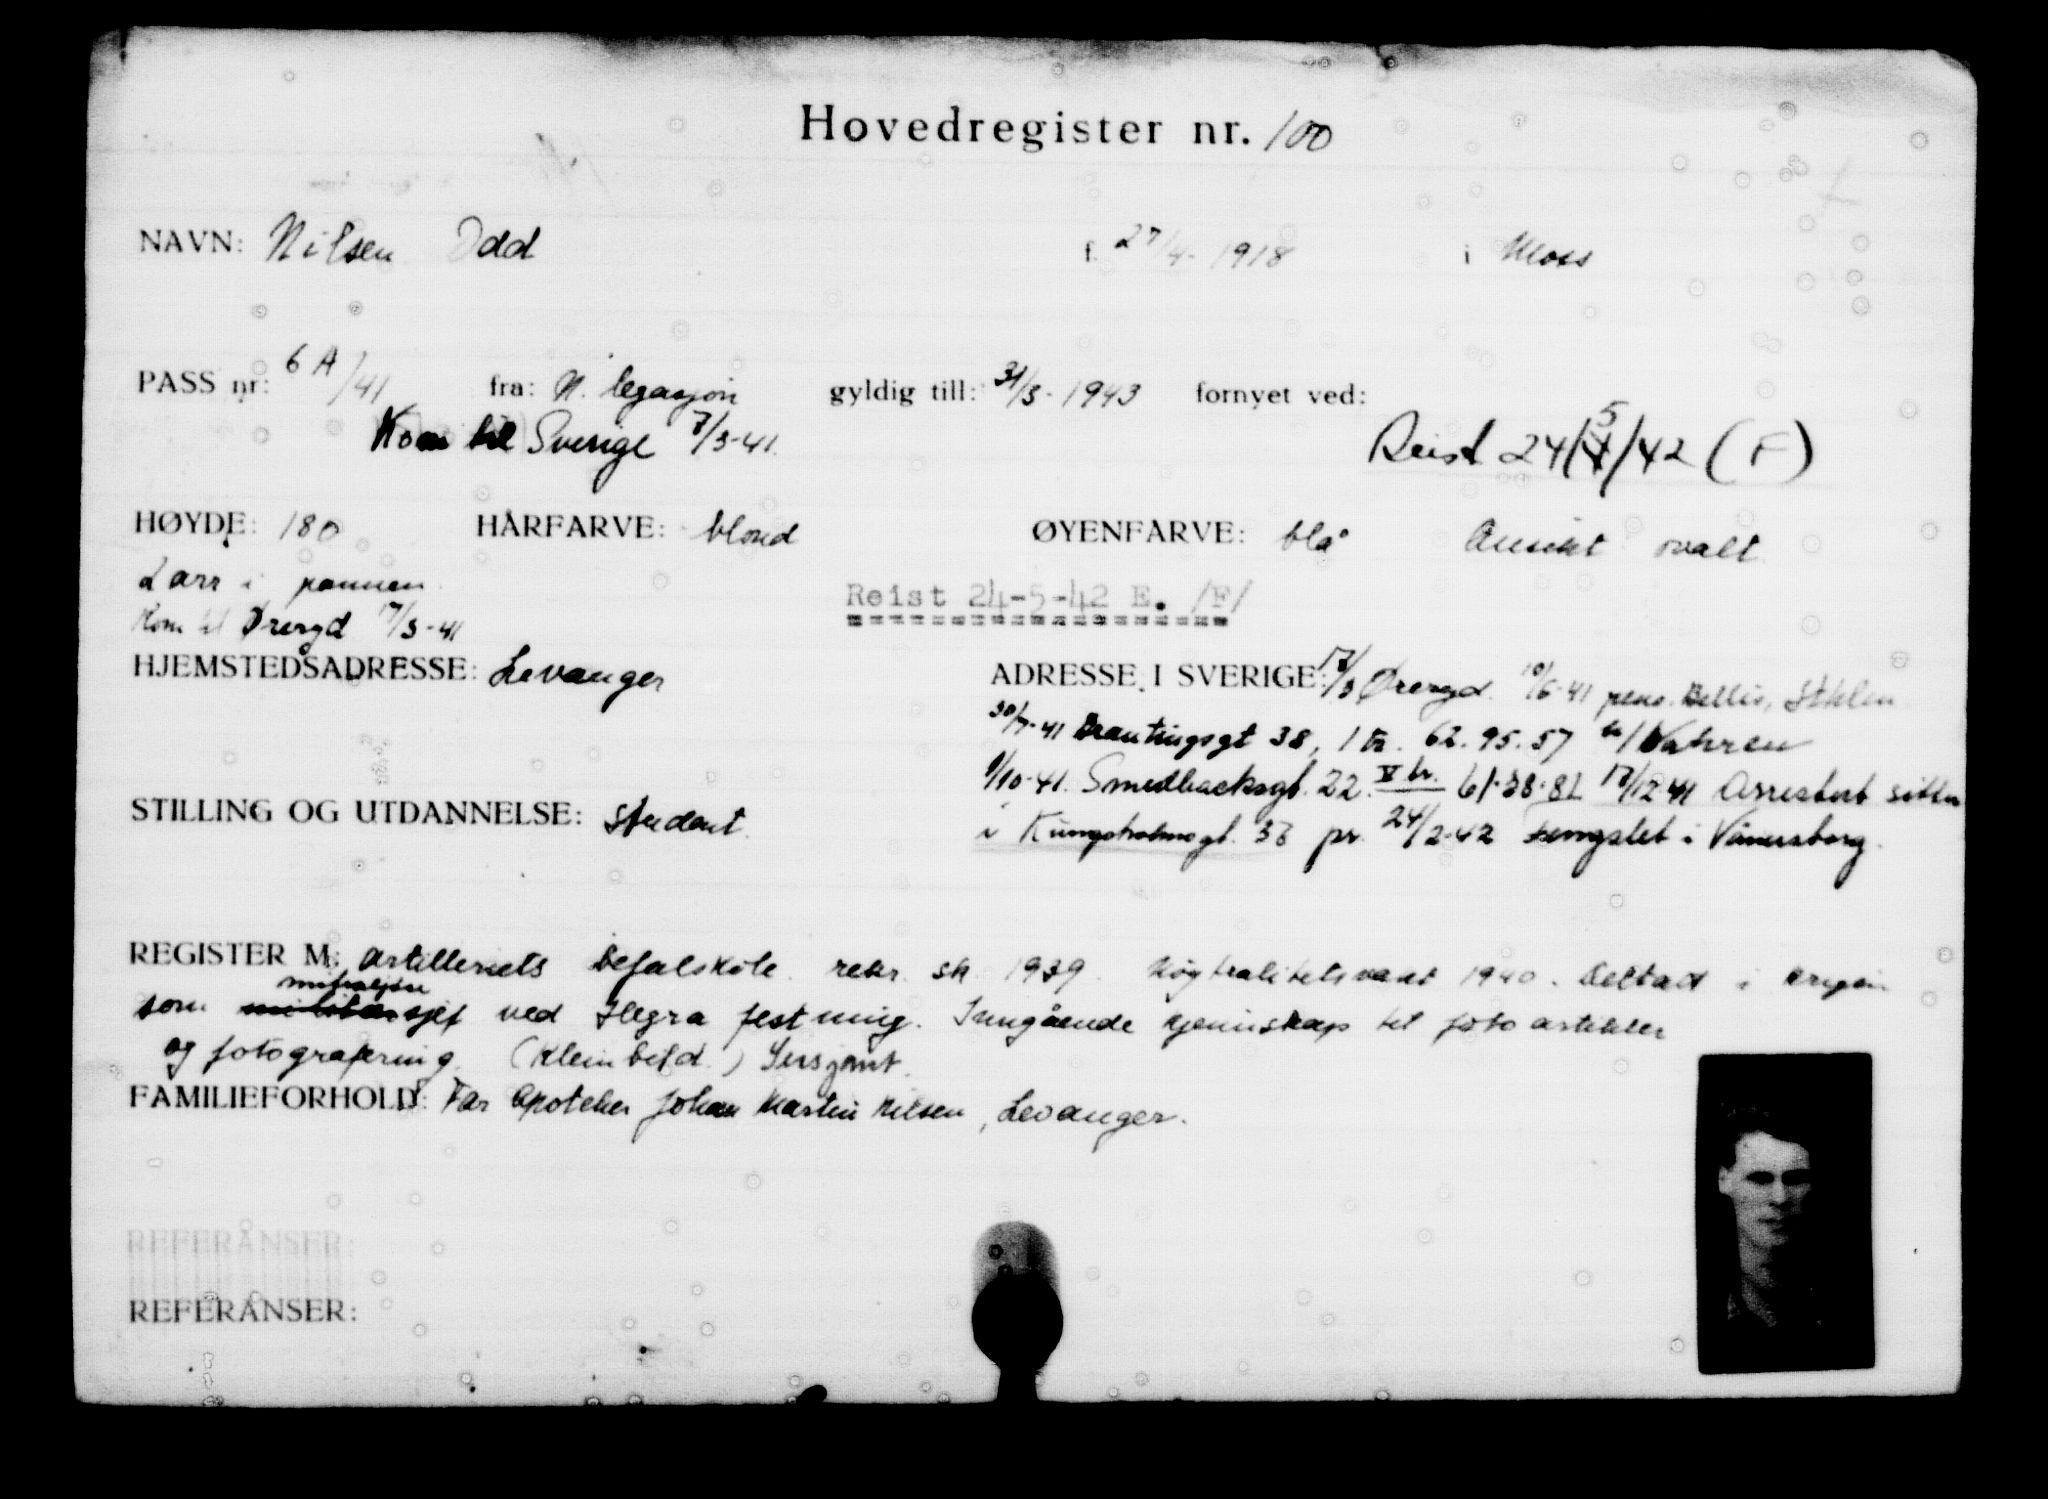 Hovedregister nr. 100
NAVN: Nilsen Odd f. 27/4-1918 i Moss
PASS nr: 6 A/41 fra: N. legasjon gyldig till: 31/3-1943 fornyet ved:
Kom til Sverige 7/3-41.
Reist 24/5/42 (F)
HØYDE: 180 HÅRFARVE: blond ØYENFARVE: blå Ansikt ovalt
i pannen
Reist 24-5-42 E. /F/
Kom til Øreryd 17/3-41
HJEMSTEDSADRESSE: Levanger
ADRESSE I SVERIGE: 17/3 Øreryd. 10/6-41 pens. Bellis, Sthlm
30/7-41 Brantingsgt 38, 1 tr. 62.95.57
1/10-41. Smedbacksgt. 22. V tr. 61.28.81 17/12 41 Arrestert sitter
i Kungsholmsgt. 37 pr. 24/2-42 Fengslet i Vänersborg.
STILLING OG UTDANNELSE: student.
REGISTER M: Artilleriets befalskole. rekr. sk. 1939. Nøytralitetsvakt 1940. Deltatt i krigen
som mitraljøse sjef ved Hegra festning. Inngående kjennskap til foto artikler
og fotografering. (Kleinbild.) Sersjant.
FAMILIEFORHOLD: Far Apoteker Johan Martin Nilsen, Levanger.
REFERANSER:
REFERANSER: